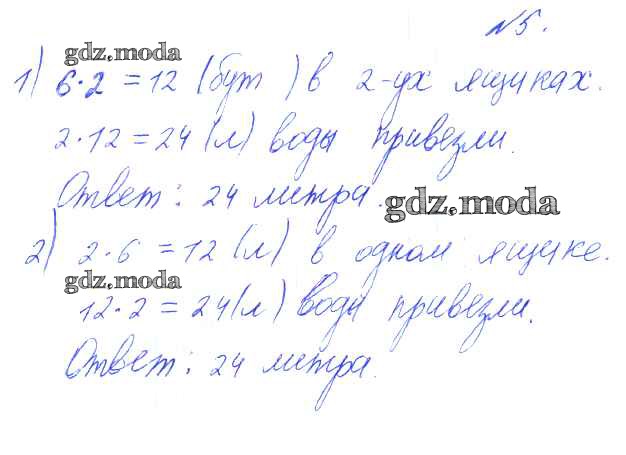 №5.
gdz.moda
1) 6·2 = 12 (бут) в 2-ух ящиках.
2·12 = 24 (л) воды привезли.
Ответ: 24 литра.
gdz.moda
2) 2·6 = 12 (л) в одном ящике.
gdz.moda
12·2 = 24 (л) воды привезли.
Ответ: 24 литра.